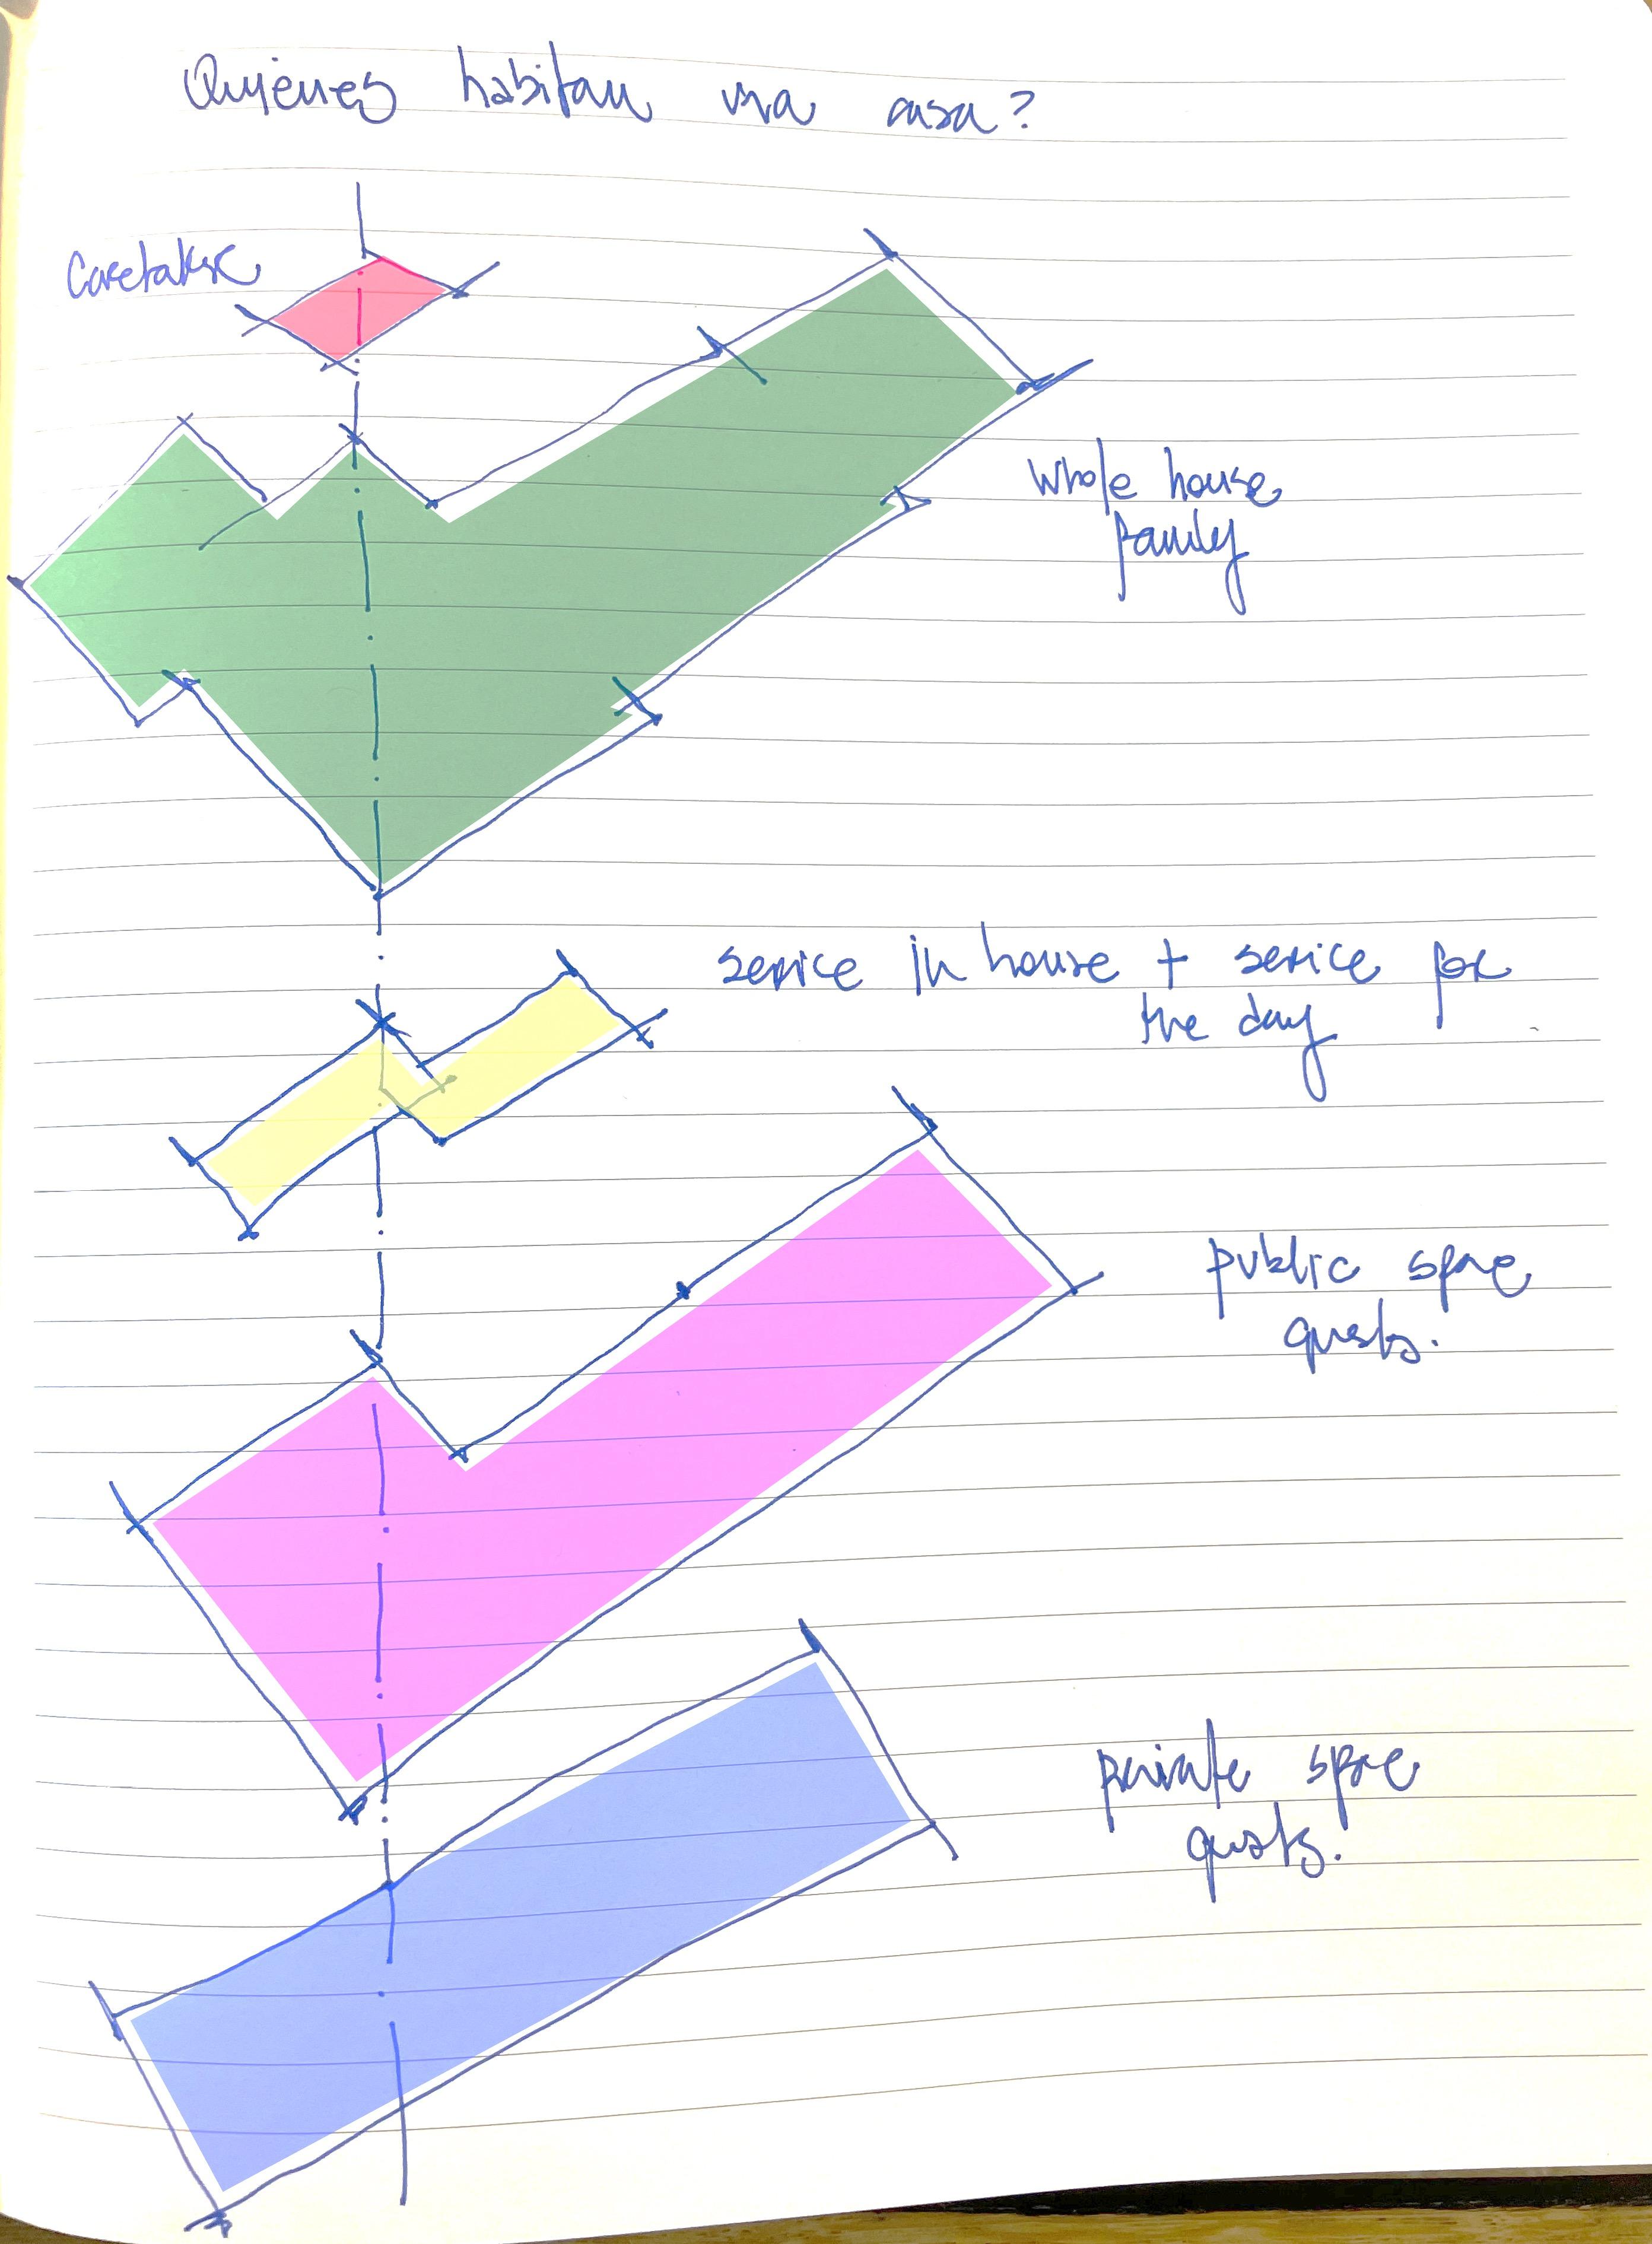 Quienes habitan una casa?
Caretaker
whole house
family
service in house + service for
the day
public space
guests.
private space
guests.